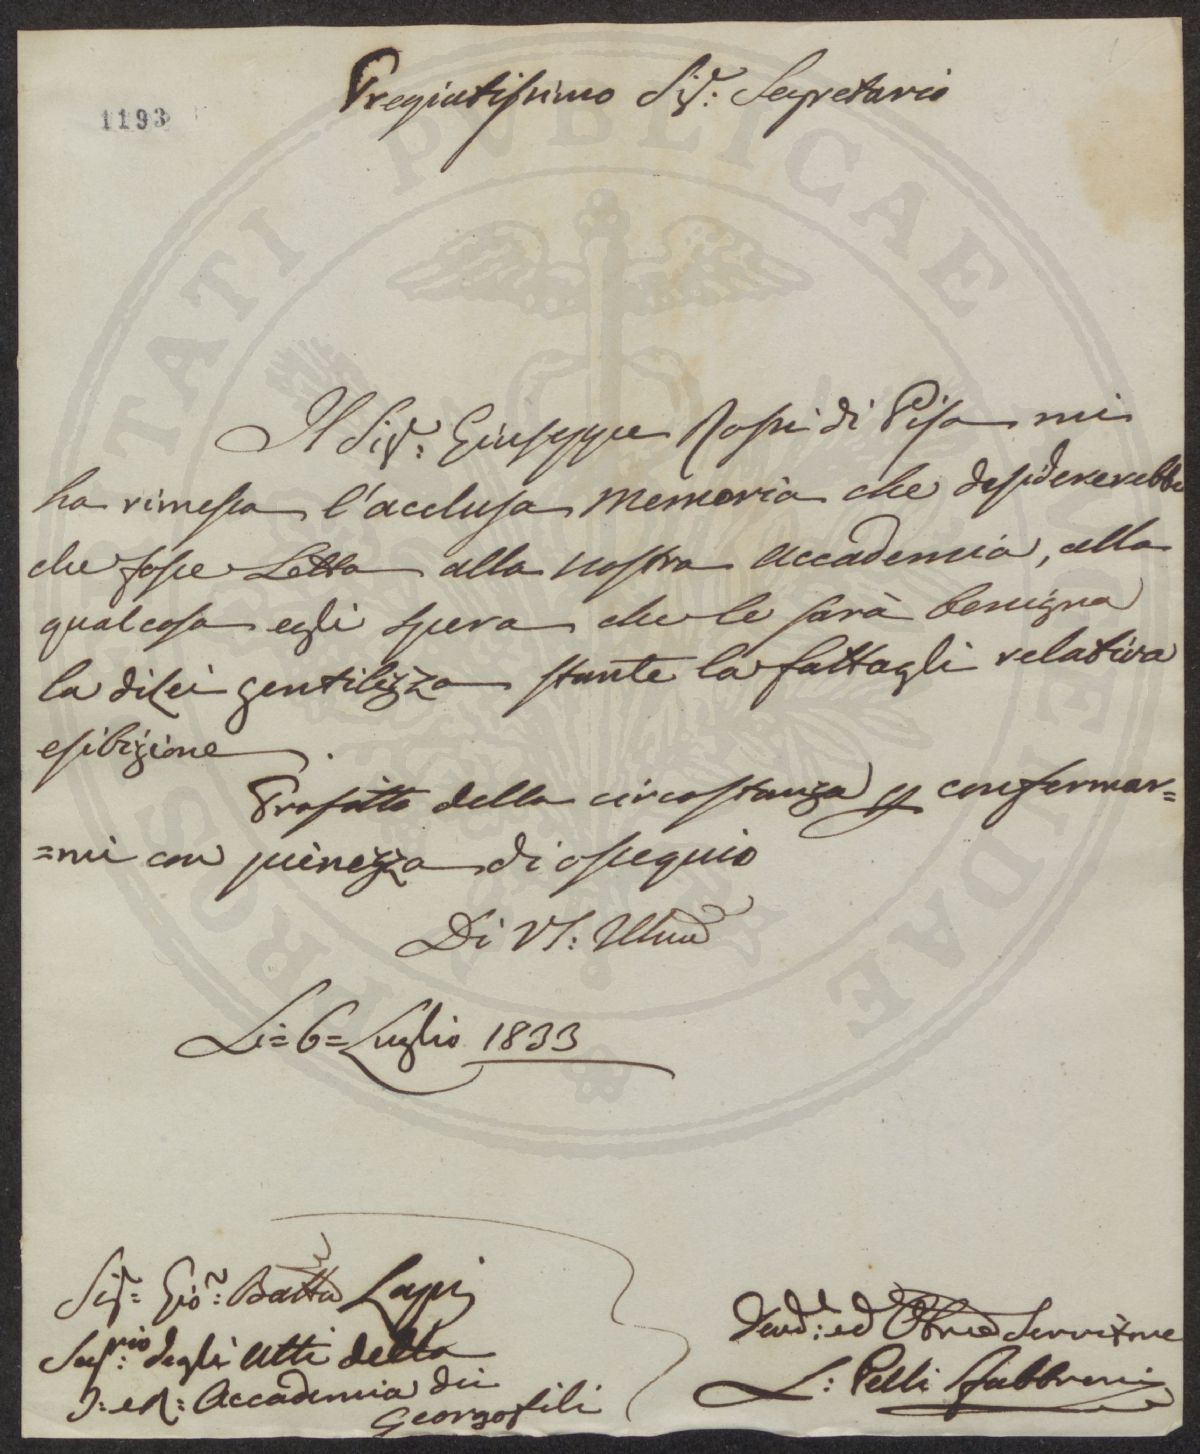 1193
Pregiatissimo Sig.r: Segretario
Il Sig.r: Giuseppe Rossi di Pisa mi
ha rimessa l'acclusa Memoria che desidererebbe
che fosse Letta alla nostra Accademia, alla
qual cosa egli spera che le sarà benigna
la di Lei gentilezza stante la fattagli relativa
esibizione.
Profitto della circostanza p confermar=
=mi con pienezza di ossequio
Di VS: Illma
Li=6=Luglio 1833
Sig.r: Gio: Batta Lapi
Seg.rio: degli Atti della
I: e R: Accademia dei
Georgofili
Devd.: ed Obmo Servitore
L: Pelli Fabbroni
PROSPERITATI PVBLICAE AVGENDAE